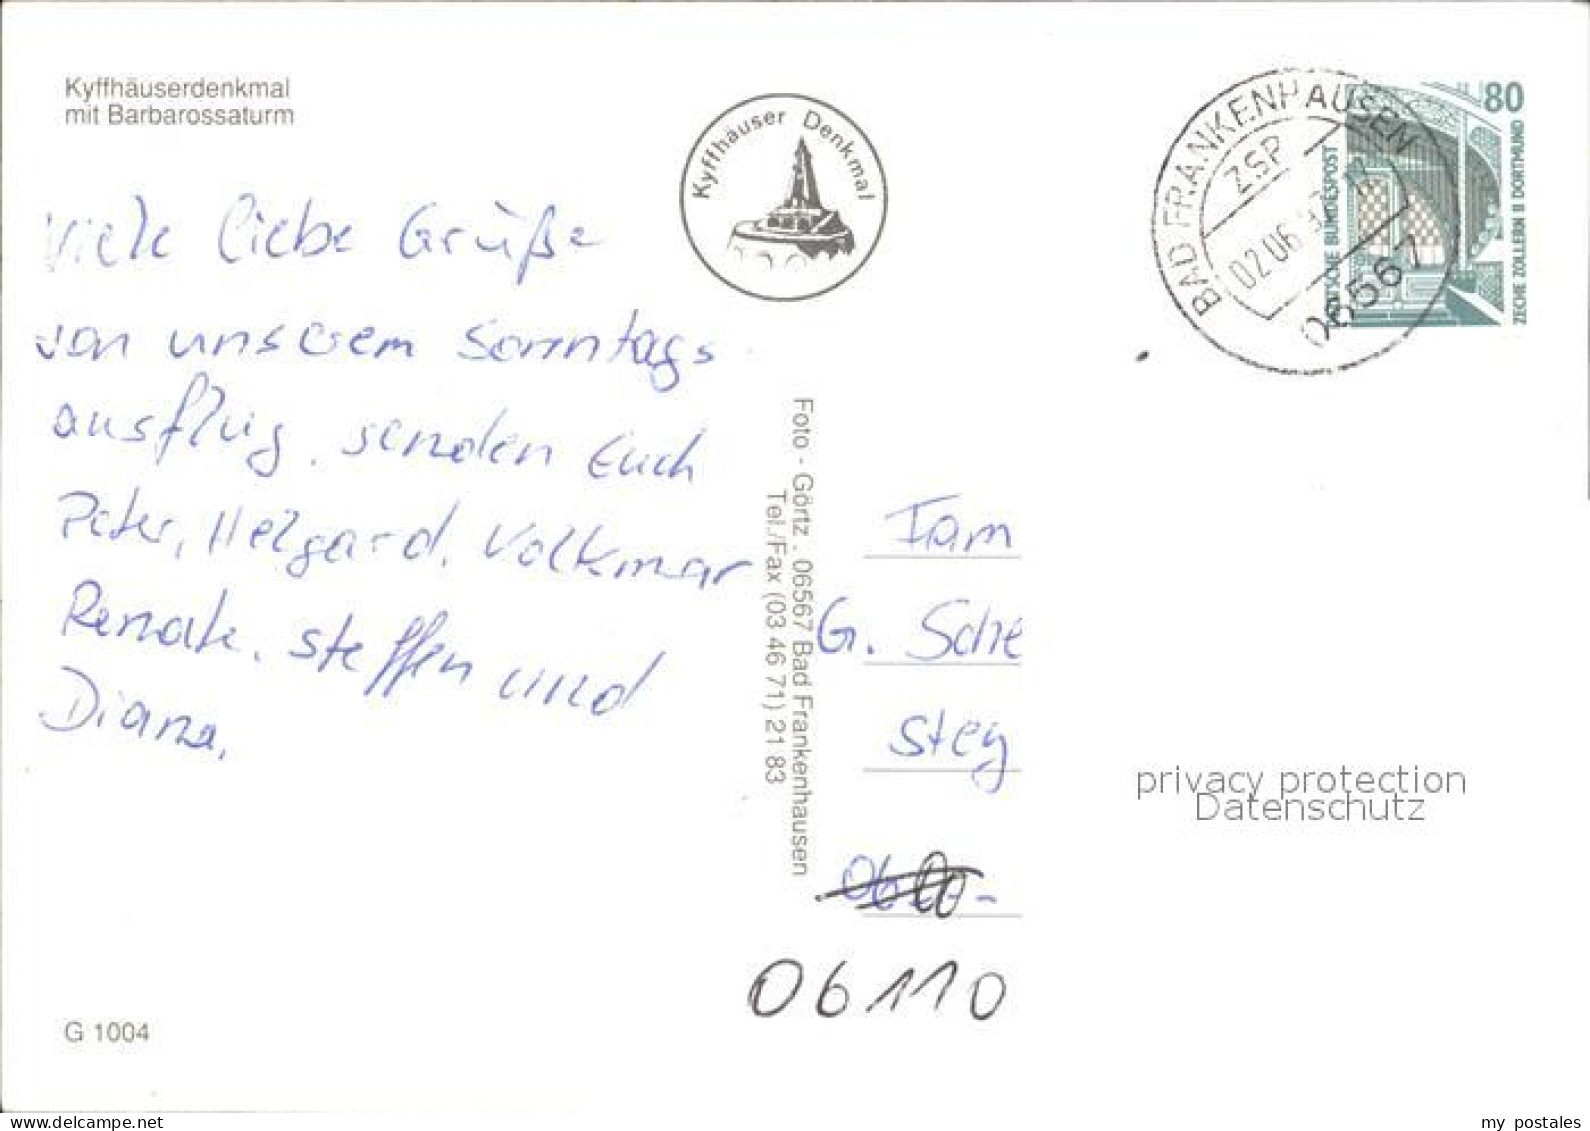 Kyffhäuserdenkmal
mit Barbarossaturm
Viele liebe Grüße
von unserem Sonntags
ausflug, senden Euch
Peter, Helgard, Volkmar
Renate, Steffen und
Diana.
G 1004
Kyffhäuser Denkmal
Foto - Görtz . 06567 Bad Frankenhausen
Tel./Fax (03 46 71) 21 83
BAD FRANKENHAUSEN
ZSP
02.06
06567
80
DEUTSCHE BUNDESPOST
ZECHE ZOLLERN II DORTMUND
Fam
G. Sche
Steg
06110
privacy protection
Datenschutz
my postales